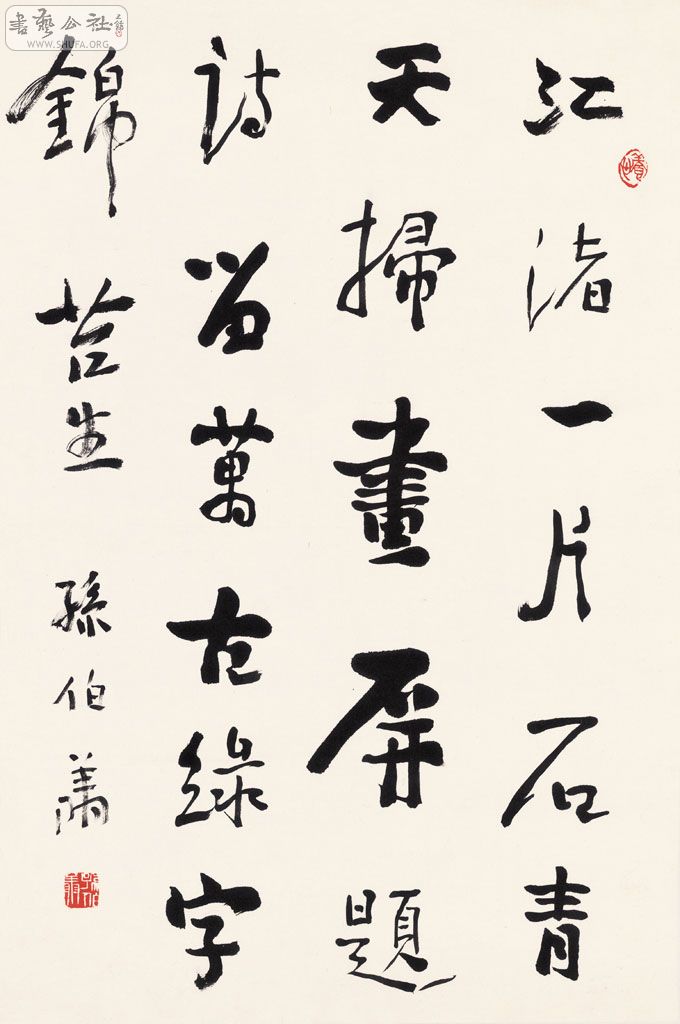 書藝公社
WWW.SHUFA.ORG
江渚一片石青
天掃畫屏題
詩留萬古綠字
錦苔生 孫伯翔